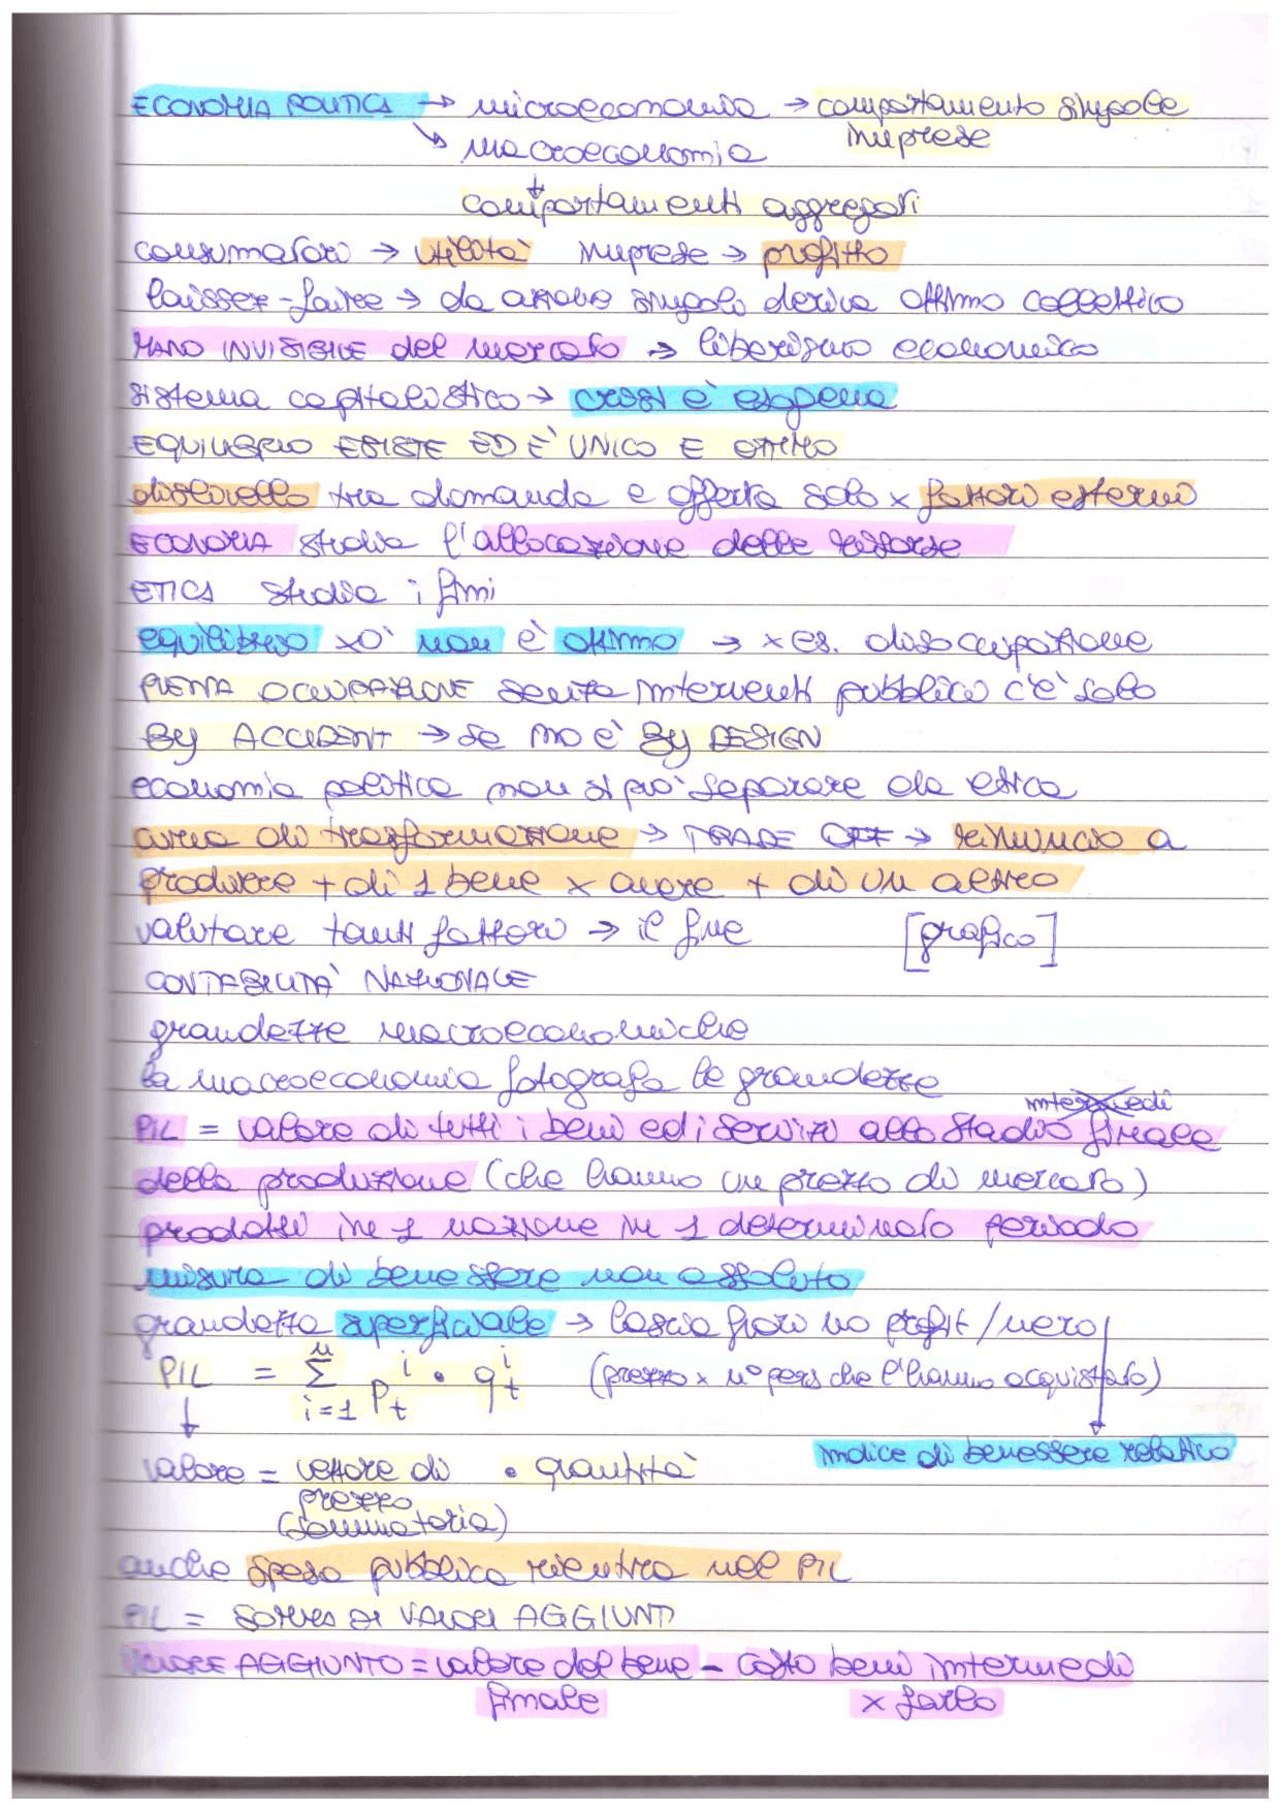 ECONOMIA POLITICA → microeconomia → comportamento singole
imprese
↘ macroeconomia
↓
comportamenti aggregati
consumatori → utilità imprese → profitto
laissez-faire → da azione singolo deriva ottimo collettivo
MANO INVISIBILE del mercato → liberismo economico
sistema capitalistico → crisi è esogena
EQUILIBRIO ESISTE ED È UNICO E OTTIMO
dislivello tra domanda e offerta solo x fattori esterni
ECONOMIA studia l'allocazione delle risorse
ETICA studia i fini
equilibrio xò non è ottimo → x es. disoccupazione
PIENA OCCUPAZIONE senza interventi pubblico c'è solo
By ACCIDENT → se no è By DESIGN
economia politica non si può separare da etica
curva di trasformazione → TRADE OFF → rinuncio a
produrre + di 1 bene x avere + di un altro
valutare tanti fattori → il fine [grafico]
CONTABILITÀ NAZIONALE
grandezze macroeconomiche
la macroeconomia fotografa le grandezze
intermedi
PIL = valore di tutti i beni ed i servizi allo stadio finale
della produzione (che hanno un prezzo di mercato)
prodotti in 1 nazione in 1 determinato periodo
misura di benessere non assoluto
grandezza superficiale → lascia fuori no profit/nero
PIL = n Σ i=1 p i t • q i t (prezzo x n° pers che l'hanno acquistato)
↓
indice di benessere relativo
valore = vettore di • quantità
prezzo
(sommatoria)
anche spesa pubblica rientra nel PIL
PIL = SOMMA DI VALORI AGGIUNTI
VALORE AGGIUNTO = valore del bene - costo beni intermedi
finale x farlo